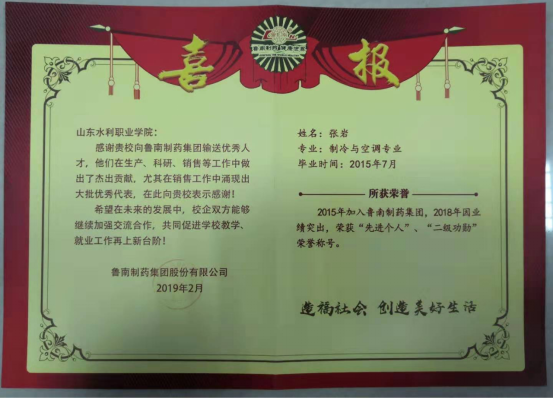 喜报
鲁南制药
山东水利职业学院：
感谢贵校向鲁南制药集团输送优秀人
才，他们在生产、科研、销售等工作中做
出了杰出贡献，尤其在销售工作中涌现出
大批优秀代表，在此向贵校表示感谢！
希望在未来的发展中，校企双方能够
继续加强交流合作，共同促进学校教学、
就业工作再上新台阶！
鲁南制药集团股份有限公司
2019年2月
姓名：张岩
专业：制冷与空调专业
毕业时间：2015年7月
所获荣誉
2015年加入鲁南制药集团，2018年因业
绩突出，荣获“先进个人”、“二级功勋”
荣誉称号。
造福社会 创造美好生活